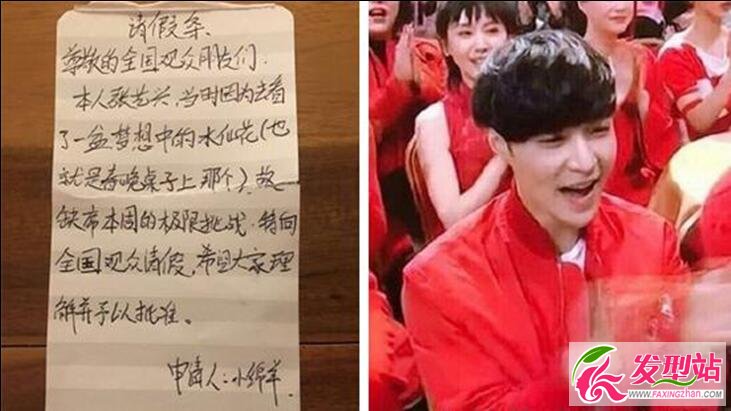 请假条
尊敬的全国观众朋友们:
本人张艺兴,当时因为去看
了一盆梦想中的水仙花(也
就是春晚桌子上那个),故
缺席本周的极限挑战,特向
全国观众请假,希望大家理
解并予以批准。
申请人:小绵羊
发型站
WWW.FAXINGZHAN.COM